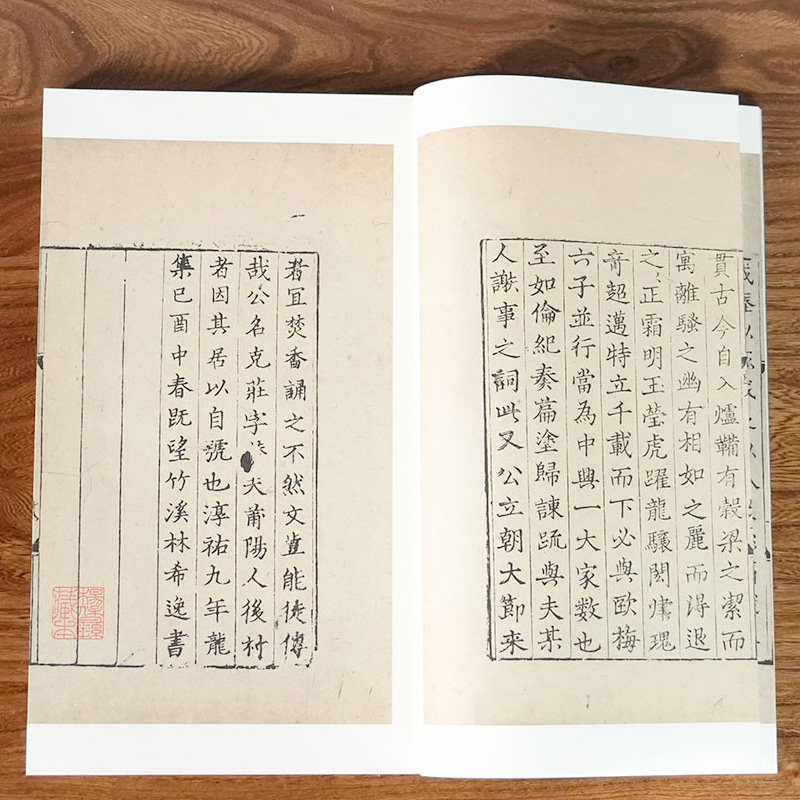 貫古今自入爐鞴有穀梁之潔而
寓離騷之幽有相如之麗而得退
之之正霜明玉瑩虎躍龍驤閎肆瑰
奇超邁特立千載而下必與歐梅
六子並行當為中興一大家數也
至如倫紀奏篇塗歸諫疏與夫某
人謝事之詞此又公立朝大節來
者宜焚香誦之不然文豈能徒傳
哉公名克莊字夫莆陽人後村
者因其居以自號也淳祐九年龍
集巳酉中春既望竹溪林希逸書